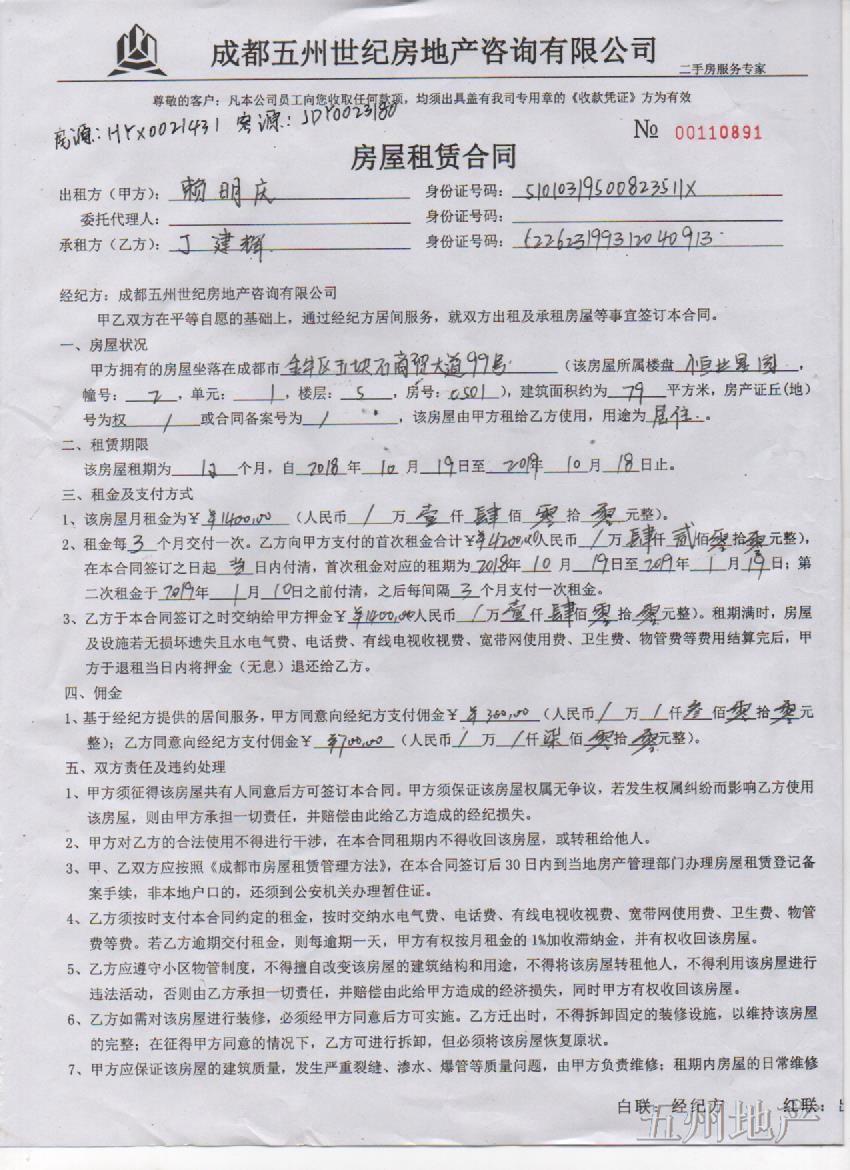 成都五州世纪房地产咨询有限公司
二手房服务专家
尊敬的客户：凡本公司员工向您收取任何款项，均须出具盖有我司专用章的《收款凭证》方为有效
房源：HYX0021431 客源：JDY0023180
№ 00110891
房屋租赁合同
出租方（甲方）： 赖明庆 身份证号码： 51010319500823511X
委托代理人： 身份证号码：
承租方（乙方）： 丁建辉 身份证号码： 622623199312040913
经纪方：成都五州世纪房地产咨询有限公司
甲乙双方在平等自愿的基础上，通过经纪方居间服务，就双方出租及承租房屋等事宜签订本合同。
一、房屋状况
甲方拥有的房屋坐落在成都市 金牛区五块石商贸大道99号 （该房屋所属楼盘 恒业星园 ，
幢号： 2 ，单元： 1 ，楼层： 5 ，房号： 0501 ），建筑面积约为 79 平方米，房产证丘(地)
号为权 / 或合同备案号为 / ，该房屋由甲方租给乙方使用，用途为 居住 。
二、租赁期限
该房屋租期为 12 个月，自 2018 年 10 月 19 日至 2019 年 10 月 18 日止。
三、租金及支付方式
1、该房屋月租金为￥ ￥1400.00 （人民币 / 万 壹 仟 肆 佰 零 拾 零 元整）。
2、租金每 3 个月交付一次。乙方向甲方支付的首次租金合计￥ ￥4200.00 人民币 / 万 肆 仟 贰 佰 零 拾 零 元整），
在本合同签订之日起 当 日内付清，首次租金对应的租期为 2018 年 10 月 19 日至 2019 年 1 月 19 日；第
二次租金于 2019 年 1 月 10 日之前付清，之后每间隔 3 个月支付一次租金。
3、乙方于本合同签订之时交纳给甲方押金￥ ￥1400.00 人民币 / 万 壹 仟 肆 佰 零 拾 零 元整）。租期满时，房屋
及设施若无损坏遗失且水电气费、电话费、有线电视收视费、宽带网使用费、卫生费、物管费等费用结算完后，甲
方于退租当日内将押金（无息）退还给乙方。
四、佣金
1、基于经纪方提供的居间服务，甲方同意向经纪方支付佣金￥ ￥300.00 （人民币 / 万 / 仟 叁 佰 零 拾 零 元
整）；乙方同意向经纪方支付佣金￥ ￥700.00 （人民币 / 万 / 仟 柒 佰 零 拾 零 元整）。
五、双方责任及违约处理
1、甲方须征得该房屋共有人同意后方可签订本合同。甲方须保证该房屋权属无争议，若发生权属纠纷而影响乙方使用
该房屋，则由甲方承担一切责任，并赔偿由此给乙方造成的经纪损失。
2、甲方对乙方的合法使用不得进行干涉，在本合同租期内不得收回该房屋，或转租给他人。
3、甲、乙双方应按照《成都市房屋租赁管理方法》，在本合同签订后 30 日内到当地房产管理部门办理房屋租赁登记备
案手续，非本地户口的，还须到公安机关办理暂住证。
4、乙方须按时支付本合同约定的租金，按时交纳水电气费、电话费、有线电视收视费、宽带网使用费、卫生费、物管
费等费。若乙方逾期交付租金，则每逾期一天，甲方有权按月租金的 1%加收滞纳金，并有权收回该房屋。
5、乙方应遵守小区物管制度，不得擅自改变该房屋的建筑结构和用途，不得将该房屋转租他人，不得利用该房屋进行
违法活动，否则由乙方承担一切责任，并赔偿由此给甲方造成的经济损失，同时甲方有权收回该房屋。
6、乙方如需对该房屋进行装修，必须经甲方同意后方可实施。乙方迁出时，不得拆卸固定的装修设施，以维持该房屋
的完整；在征得甲方同意的情况下，乙方可进行拆卸，但必须将该房屋恢复原状。
7、甲方应保证该房屋的建筑质量，发生严重裂缝、渗水、爆管等质量问题，由甲方负责维修；租期内房屋的日常维修
白联：经纪方 红联：
五州地产